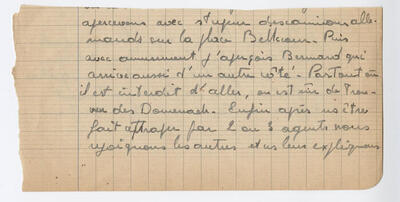 apercevons avec stupeur des camions alle-
mands sur la place Bellecour. Puis
avec amusement j'aperçois Bernard qui
arrive aussi d'un autre côté. Partout où
il est interdit d'aller, on est sûr de trou-
ver des Domenach. Enfin après ns être
fait attraper par 2 ou 3 agents nous
rejoignons les autres et ns leur expliquons